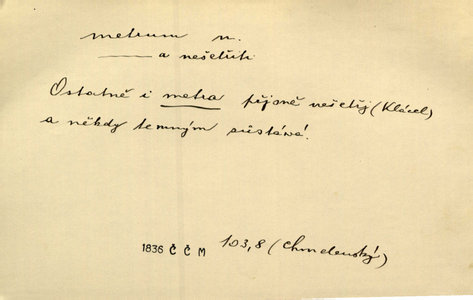 metrum n.
—— a nešetřiti
Ostatně i metra přísně nešetřj (Klácel)
a někdy temným zůstává.
1836 ČČM 103,8 (Chmelenský)